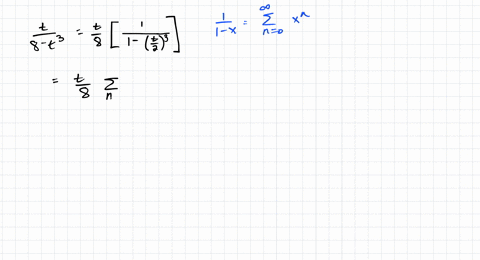 t/(8-t³) = t/8 [ 1/(1-(t/2)³) ]
1/(1-x) = ∞ Σ n=0 xⁿ
= t/8 Σ n